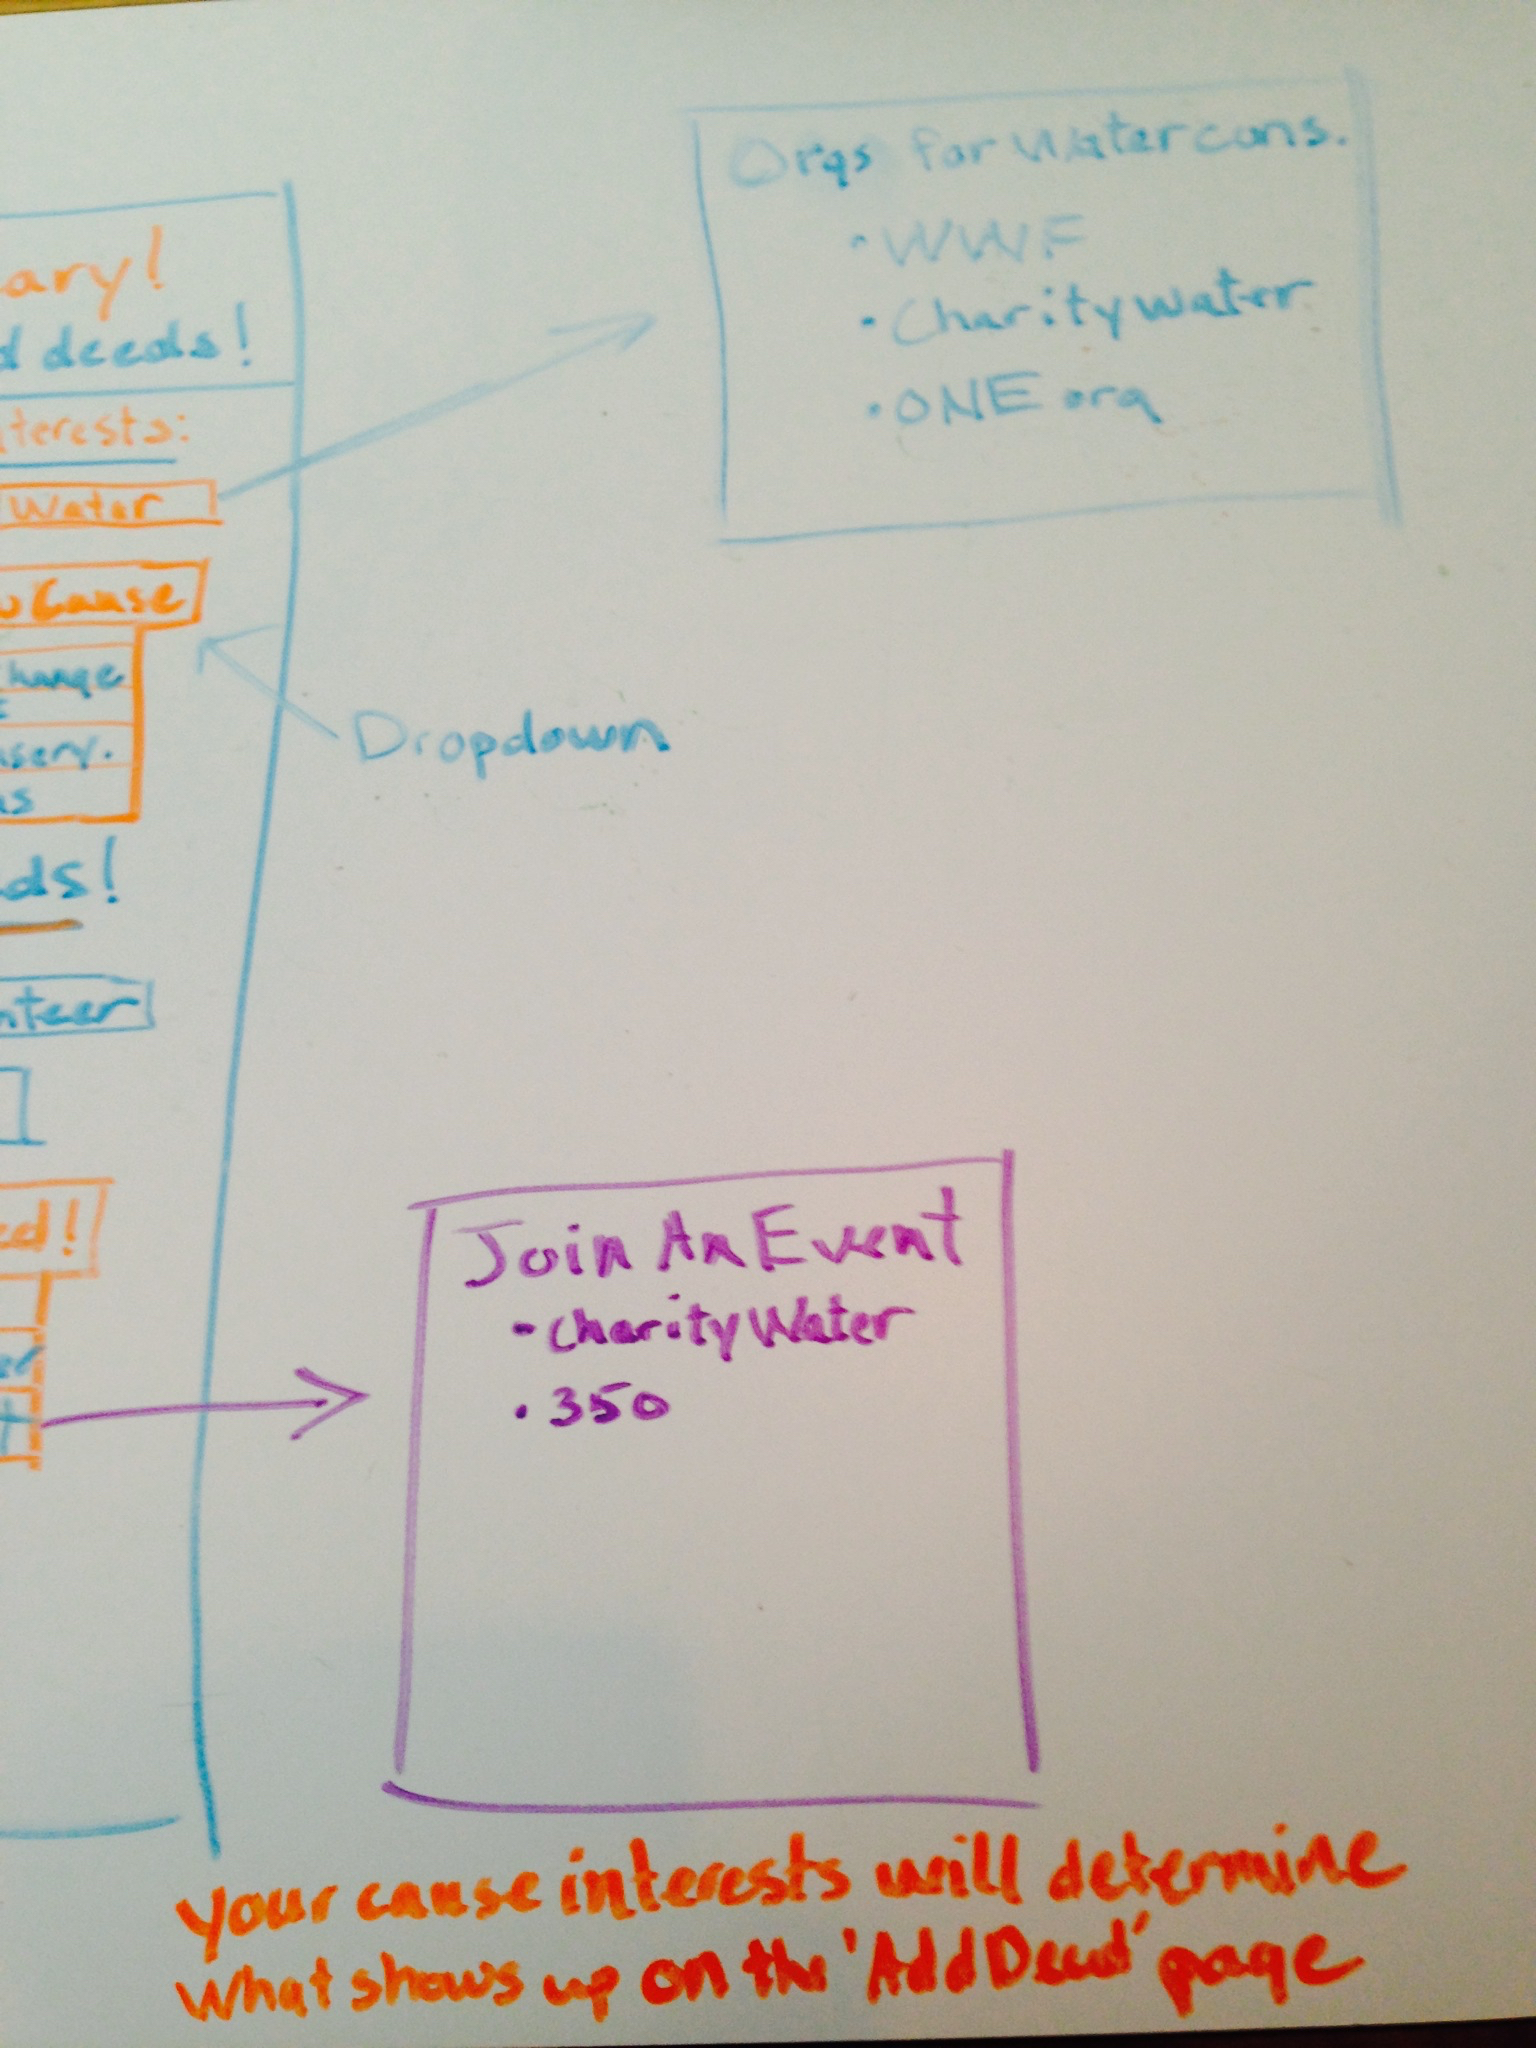 ary!
d deeds!
nterests:
Water
Cause
Change
nserv.
ds!
nteer
eed!
er
Orgs for Water cons.
• WWF
• Charity water
• ONE org
Dropdown
Join An Event
- Charity Water
• 350
your cause interests will determine
What shows up on the 'Add Deed' page